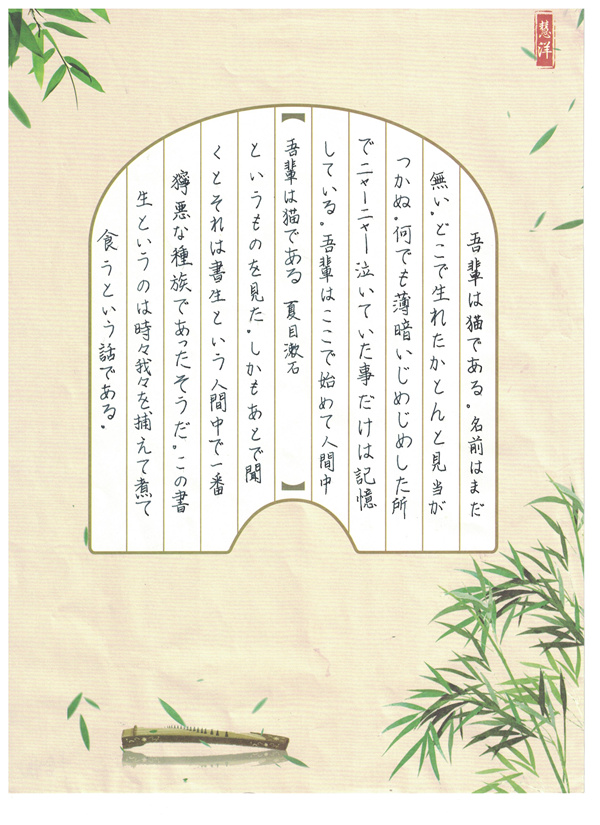 慧洋
吾輩は猫である。名前はまだ
無い。どこで生れたかとんと見当が
つかぬ。何でも薄暗いじめじめした所
でニャーニャー泣いていた事だけは記憶
している。吾輩はここで始めて人間中
【吾輩は猫である 夏目漱石】
というものを見た。しかもあとで聞
くとそれは書生という人間中で一番
獰悪な種族であったそうだ。この書
生というのは時々我々を捕えて煮て
食うという話である。